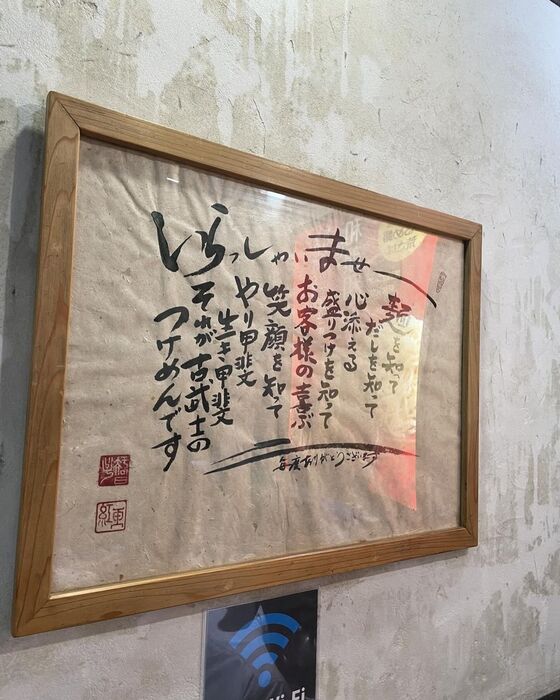 いらっしゃいませー
麺を知って
だしを知って
心添える
盛りつけを知って
お客様の喜ぶ
笑顔を知って
やり甲斐
生き甲斐
それが古武士の
つけめんです
毎度ありがとうございます
Wi-Fi